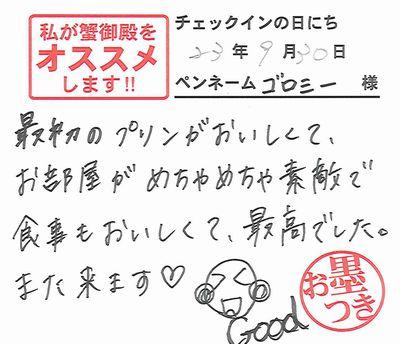 私が蟹御殿を
オススメ
します!!
チェックインの日にち
23年9月30日
ペンネーム ゴロミー 様
最初のプリンがおいしくて、
お部屋がめちゃめちゃ素敵で
食事もおいしくて、最高でした。
また来ます♡
Good
お墨
つき